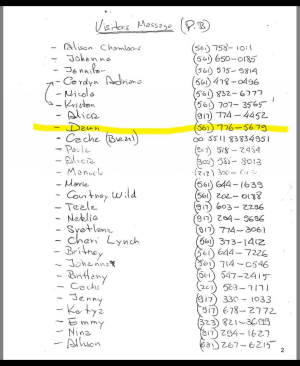 Visitors Massage (P.B)
- Alison Chambers (561) 758-1011
- Johanna (561) 650-0185
- Jennifer (561) 575-9814
- Carolyn Adriano (561) 478-0496
- Nicole (561) 832-6777
- Kristen (561) 707-3565
- Alicia (917) 774-4452
- Dawn (561) 776-5679
- Cache (Brazil) 00 5511 83834951
- Paula 518-2454
- Alicia (305) 8013
- Manuela (212)
- Maria (561) 644-1639
- Courtney Wild (561) 202-0188
- Teele (917) 603-2256
- Natalia (917) 204-9696
- Svetlana (917) 774-3061
- Chari Lynch (561) 373-1412
- Britney (561) 644-7226
- Johanna (561) 714-0546
- Brittany (561) 547-2415
- Cachi 503-7171
- Jenny (917) 330-1033
- Katya (917) 678-2772
- Emmy (323) 821-3699
- Nina (917) 294-1627
- Allison (631) 267-6215
2